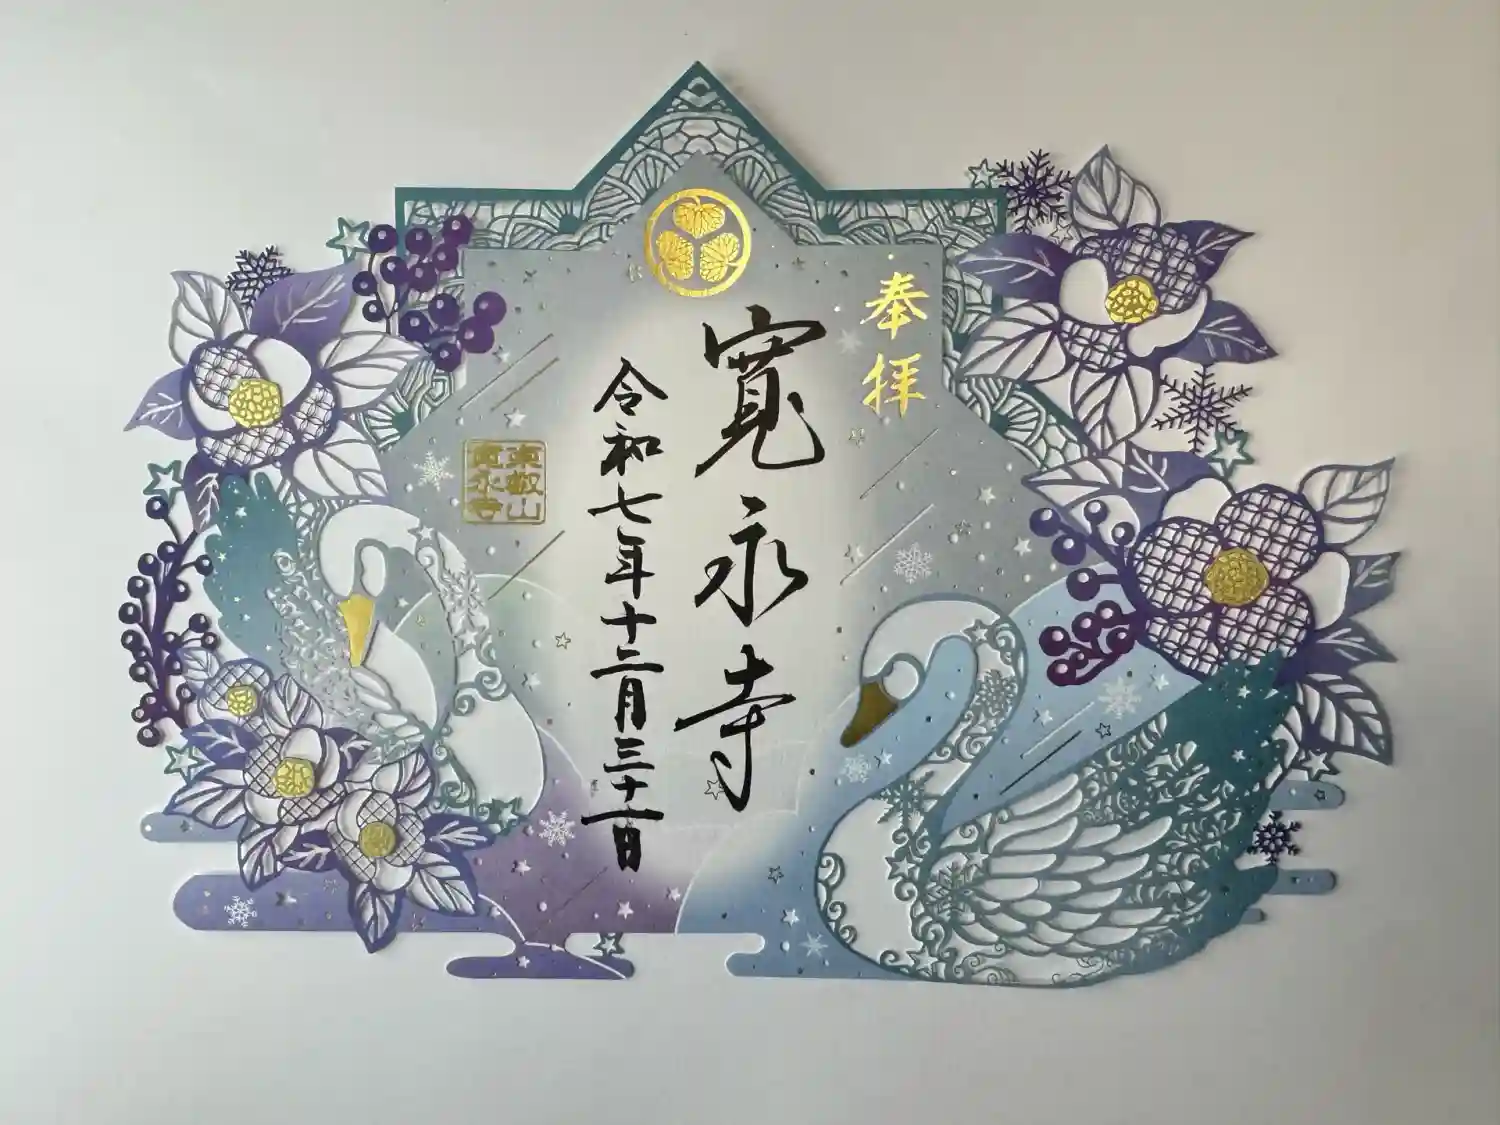 奉拝
寛永寺
令和七年十二月三十一日
東叡山
寛永寺